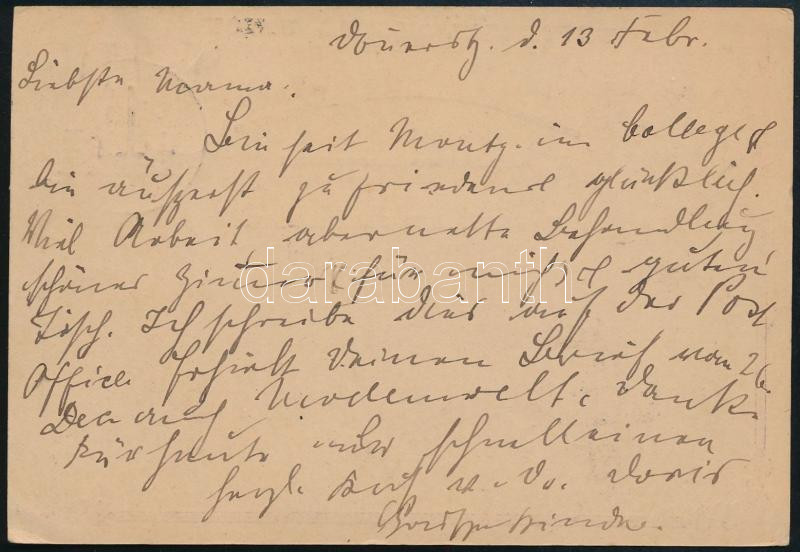 d. 13 Febr.
Liebste Mama.
Bin seit Montg. im College &
bin äußerst zufrieden & glücklich.
Viel Arbeit aber nette Behandlung
schönes Zimer für mich & guten
Tisch. Ich schreibe dies auf der Post
Office. Erhielt Deinen Brief vom 26
Dec auch Modenwelt. Danke
Für heute nur schnell einen
herzl. Kuß v. D. Doris
darabanth